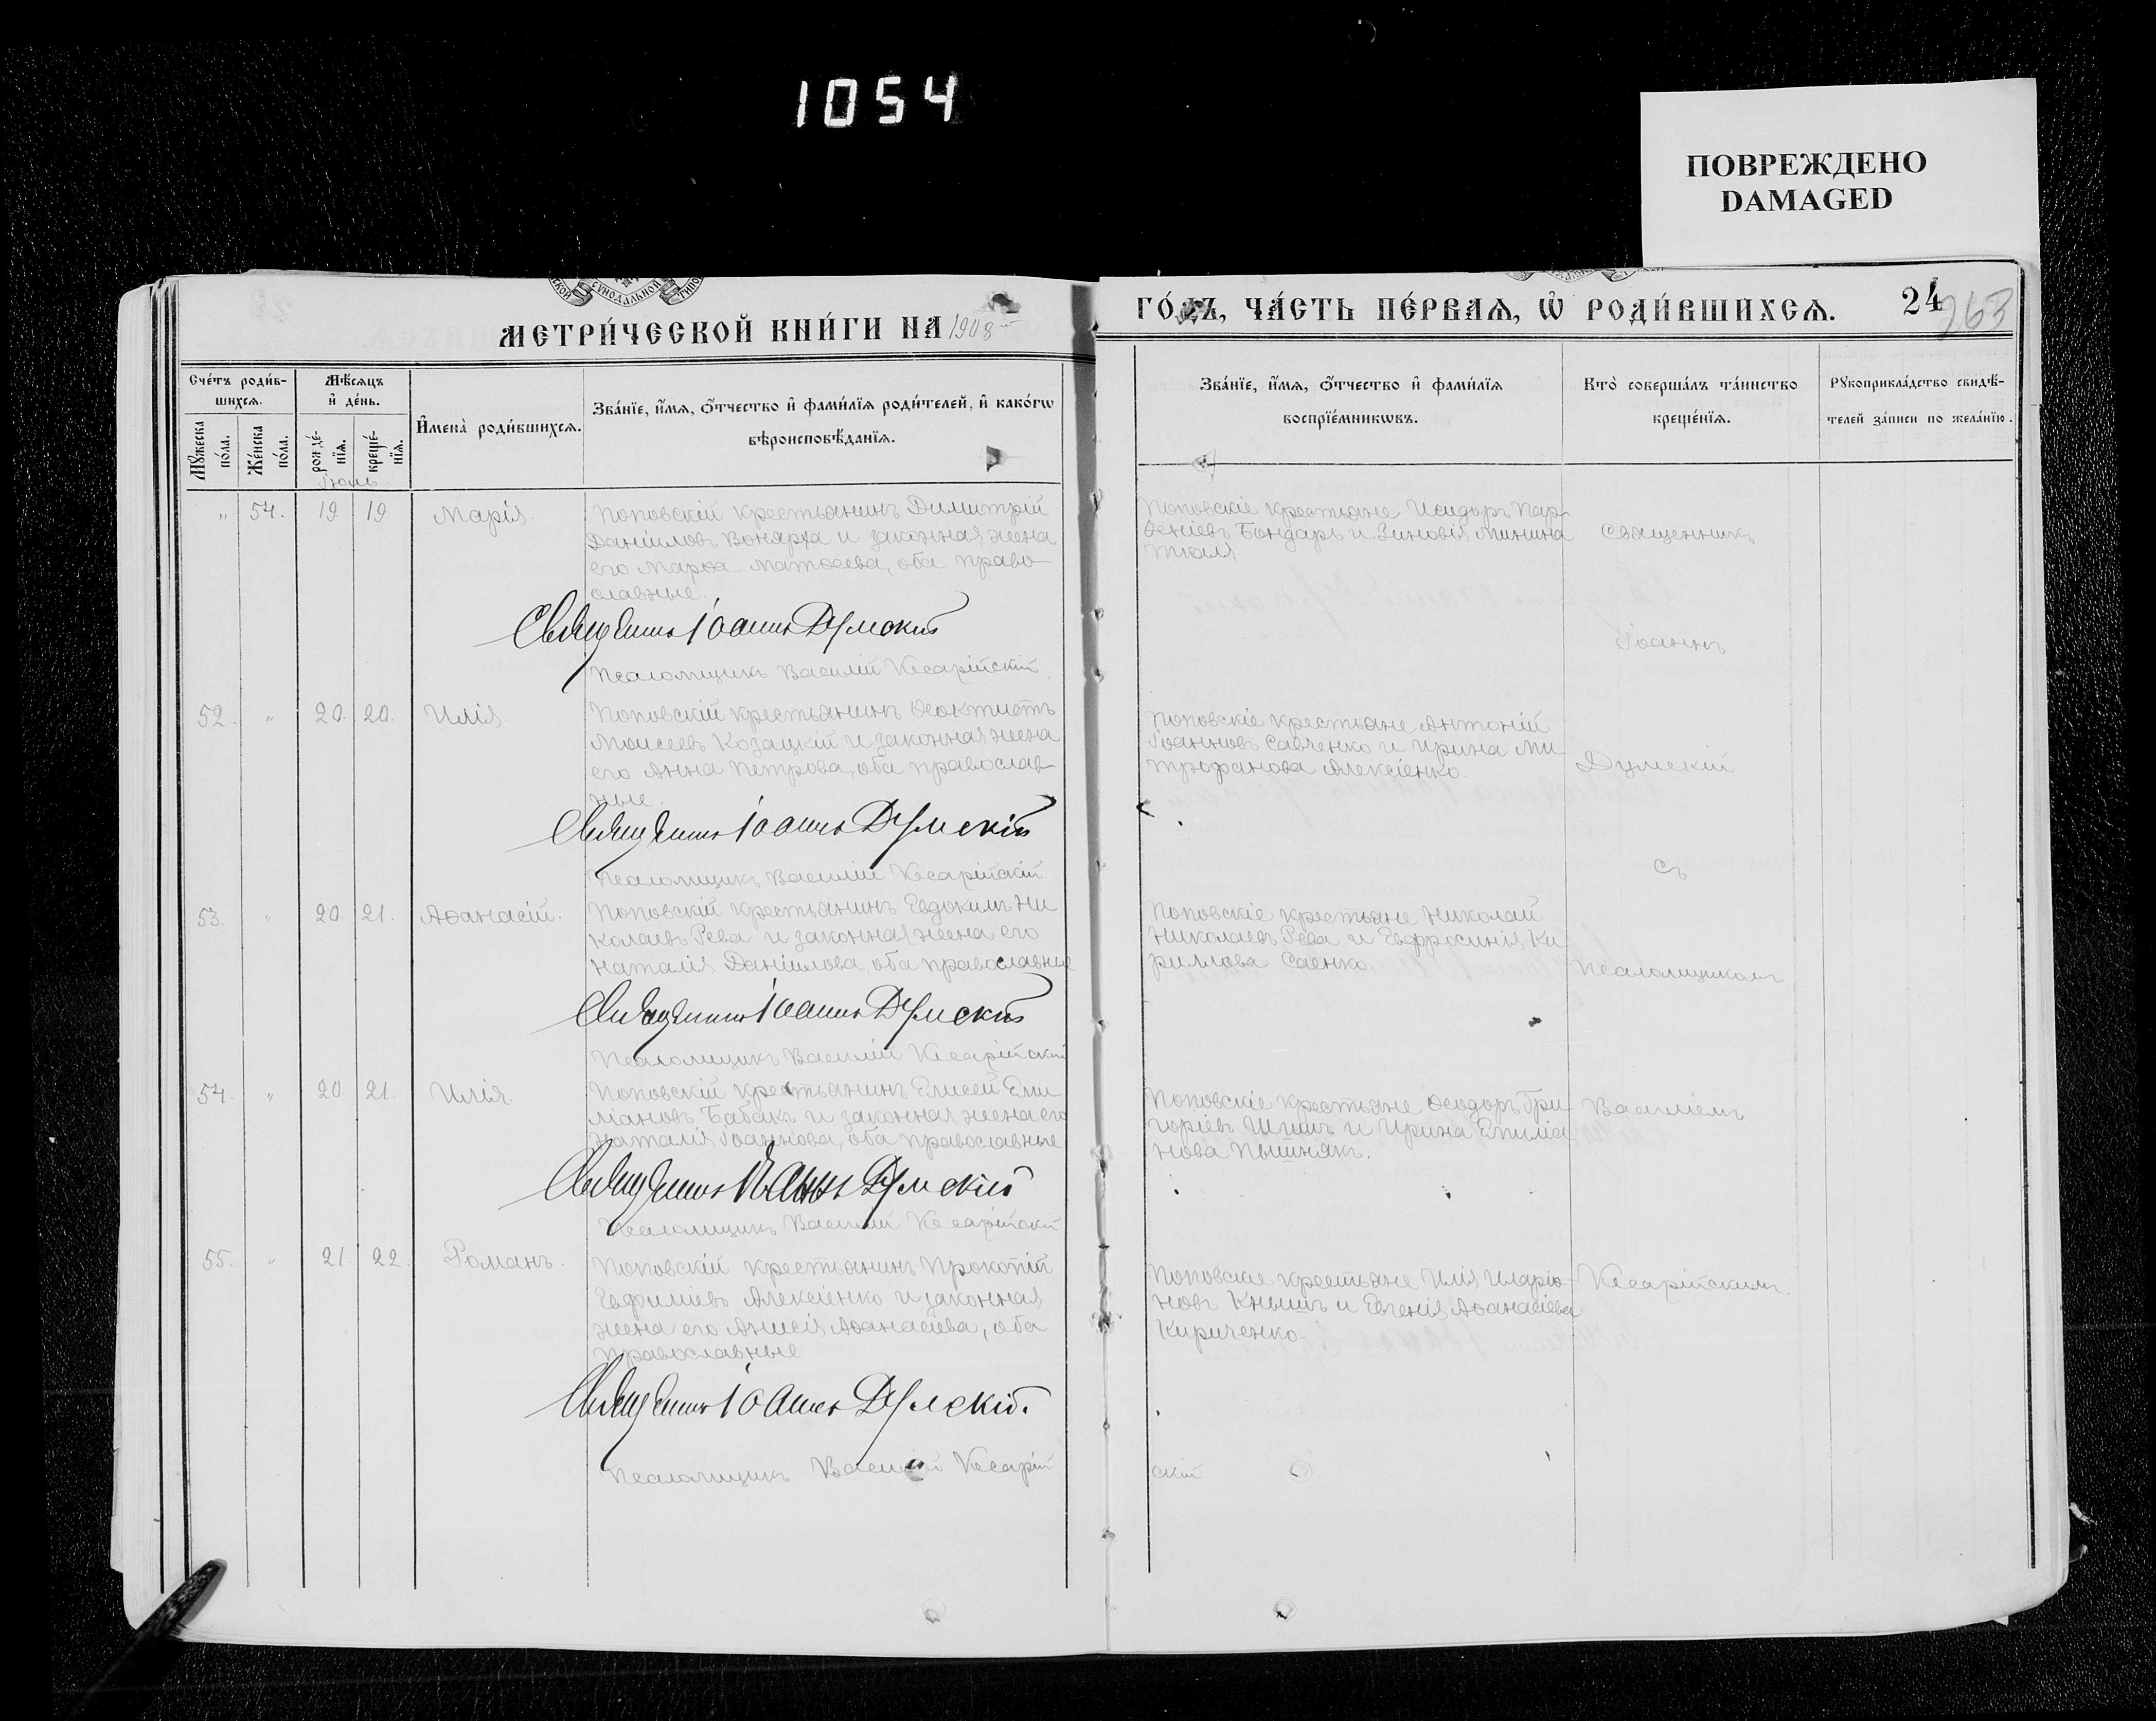 1054
ПОВРЕЖДЕНО
DAMAGED
СѴНОДАЛЬНОЙ
МЕТРИ́ЧЕСКОЙ КНИ́ГИ НА 1908
ГО́ДЪ, ЧА́СТЬ ПЕ́РВАѦ, Ѽ РОДИ́ВШИХСѦ.
24
263
Сче́тъ роди́в-
шихсѧ.
Мѣ́сѧцъ
и҆ де́нь.
И҆мена̀ роди́вшихсѧ.
Зва́нїе, и҆́мѧ, ѻ҆́тчество и҆ фами́лїѧ роди́телей, и҆ како́гѡ
вѣроисповѣ́данїѧ.
Мꙋ́жеска
по́ла.
Же́нска
по́ла.
рожде́-
нїѧ.
креще́-
нїѧ.
Іюль
Зва́нїе, и҆́мѧ, ѻ҆́тчество и҆ фами́лїѧ
воспрїе́мникѡвъ.
Кто̀ соверша́лъ та́инство
креще́нїѧ.
Рꙋкоприкла́дство свидѣ́-
телей за́писи по жела́нїю.
" 54. 19 19 Марія. Поповскій крестьянинъ Димитрій
Даніиловъ Вонярха и законная жена
его Марѳа Матѳеева, оба право-
славные.
Священникъ Іоаннъ Думскій
Псаломщикъ Василій Кесарійскій
Поповскіе крестьяне Исидоръ Пар-
ѳеніевъ Бондарь и Зиновія Минина
Священникъ
Іоаннъ
52. " 20. 20. Илія. Поповскій крестьянинъ Ѳеоктистъ
Моисеевъ Козацкій и законная жена
его Анна Петрова, оба православ-
ные.
Священникъ Іоаннъ Думскій
Псаломщикъ Василій Кесарійскій
Поповскіе крестьяне Антоній
Іоанновъ Савченко и Ирина Ми-
трофанова Алексіенко.
Думскій
съ
53. " 20. 21. Аѳанасій. Поповскій крестьянинъ Евдокимъ Ни
колаевъ Рева и законная жена его
Наталія Даніилова, оба православные
Священникъ Іоаннъ Думскій
Псаломщикъ Василій Кесарійскій
Поповскіе крестьяне Николай
Николаевъ Рева и Евфросинія Ки-
риллова Саенко.
Псаломщикомъ
54. " 20. 21. Илія. Поповскій крестьянинъ Елисей Еми
ліановъ Бабакъ и законная жена его
Наталія Іоаннова, оба православные
Священникъ Іоаннъ Думскій
Псаломщикъ Василій Кесарійскій
Поповскіе крестьяне Ѳеодоръ Гри-
горіевъ и Ирина Емиліа-
нова Пышнякъ.
Василіемъ
55. " 21. 22. Романъ. Поповскій крестьянинъ Прокопій
Евфиміевъ Алексіенко и законная
жена его Анисія Аѳанасіева, оба
православные
Священникъ Іоаннъ Думскій.
Псаломщикъ Василій Кесарій
скій
Поповскіе крестьяне Илія Иларіо-
новъ Кнышъ и Евгенія Аѳанасіева
Кириченко.
Кесарійскимъ.